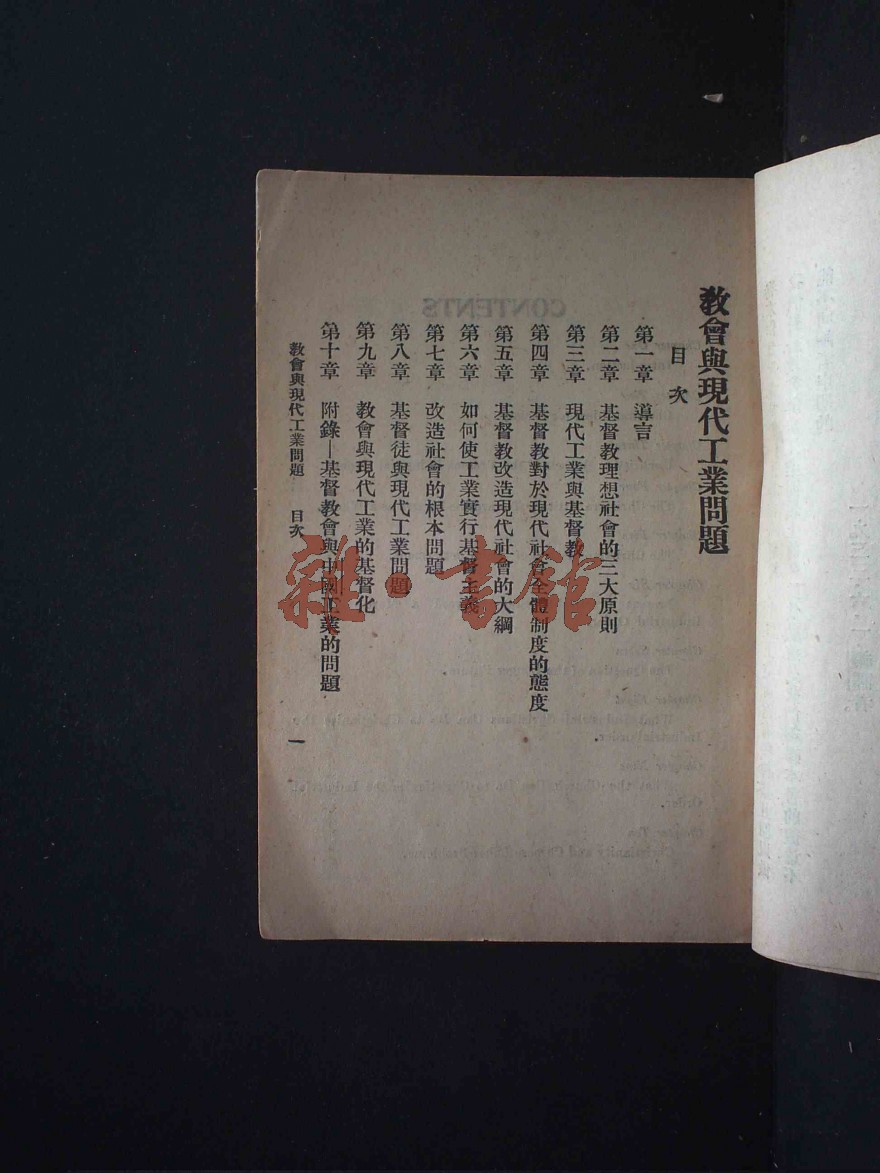 教會與現代工業問題
目次
第一章 導言
第二章 基督教理想社會的三大原則
第三章 現代工業與基督教
第四章 基督教對於現代社會全體制度的態度
第五章 基督教改造現代社會的大綱
第六章 如何使工業實行基督主義
第七章 改造社會的根本問題
第八章 基督徒與現代工業問題
第九章 教會與現代工業的基督化
第十章 附錄—基督教會與中國工業的問題
教會與現代工業問題 目次
一
雜·書館
CONTENTS